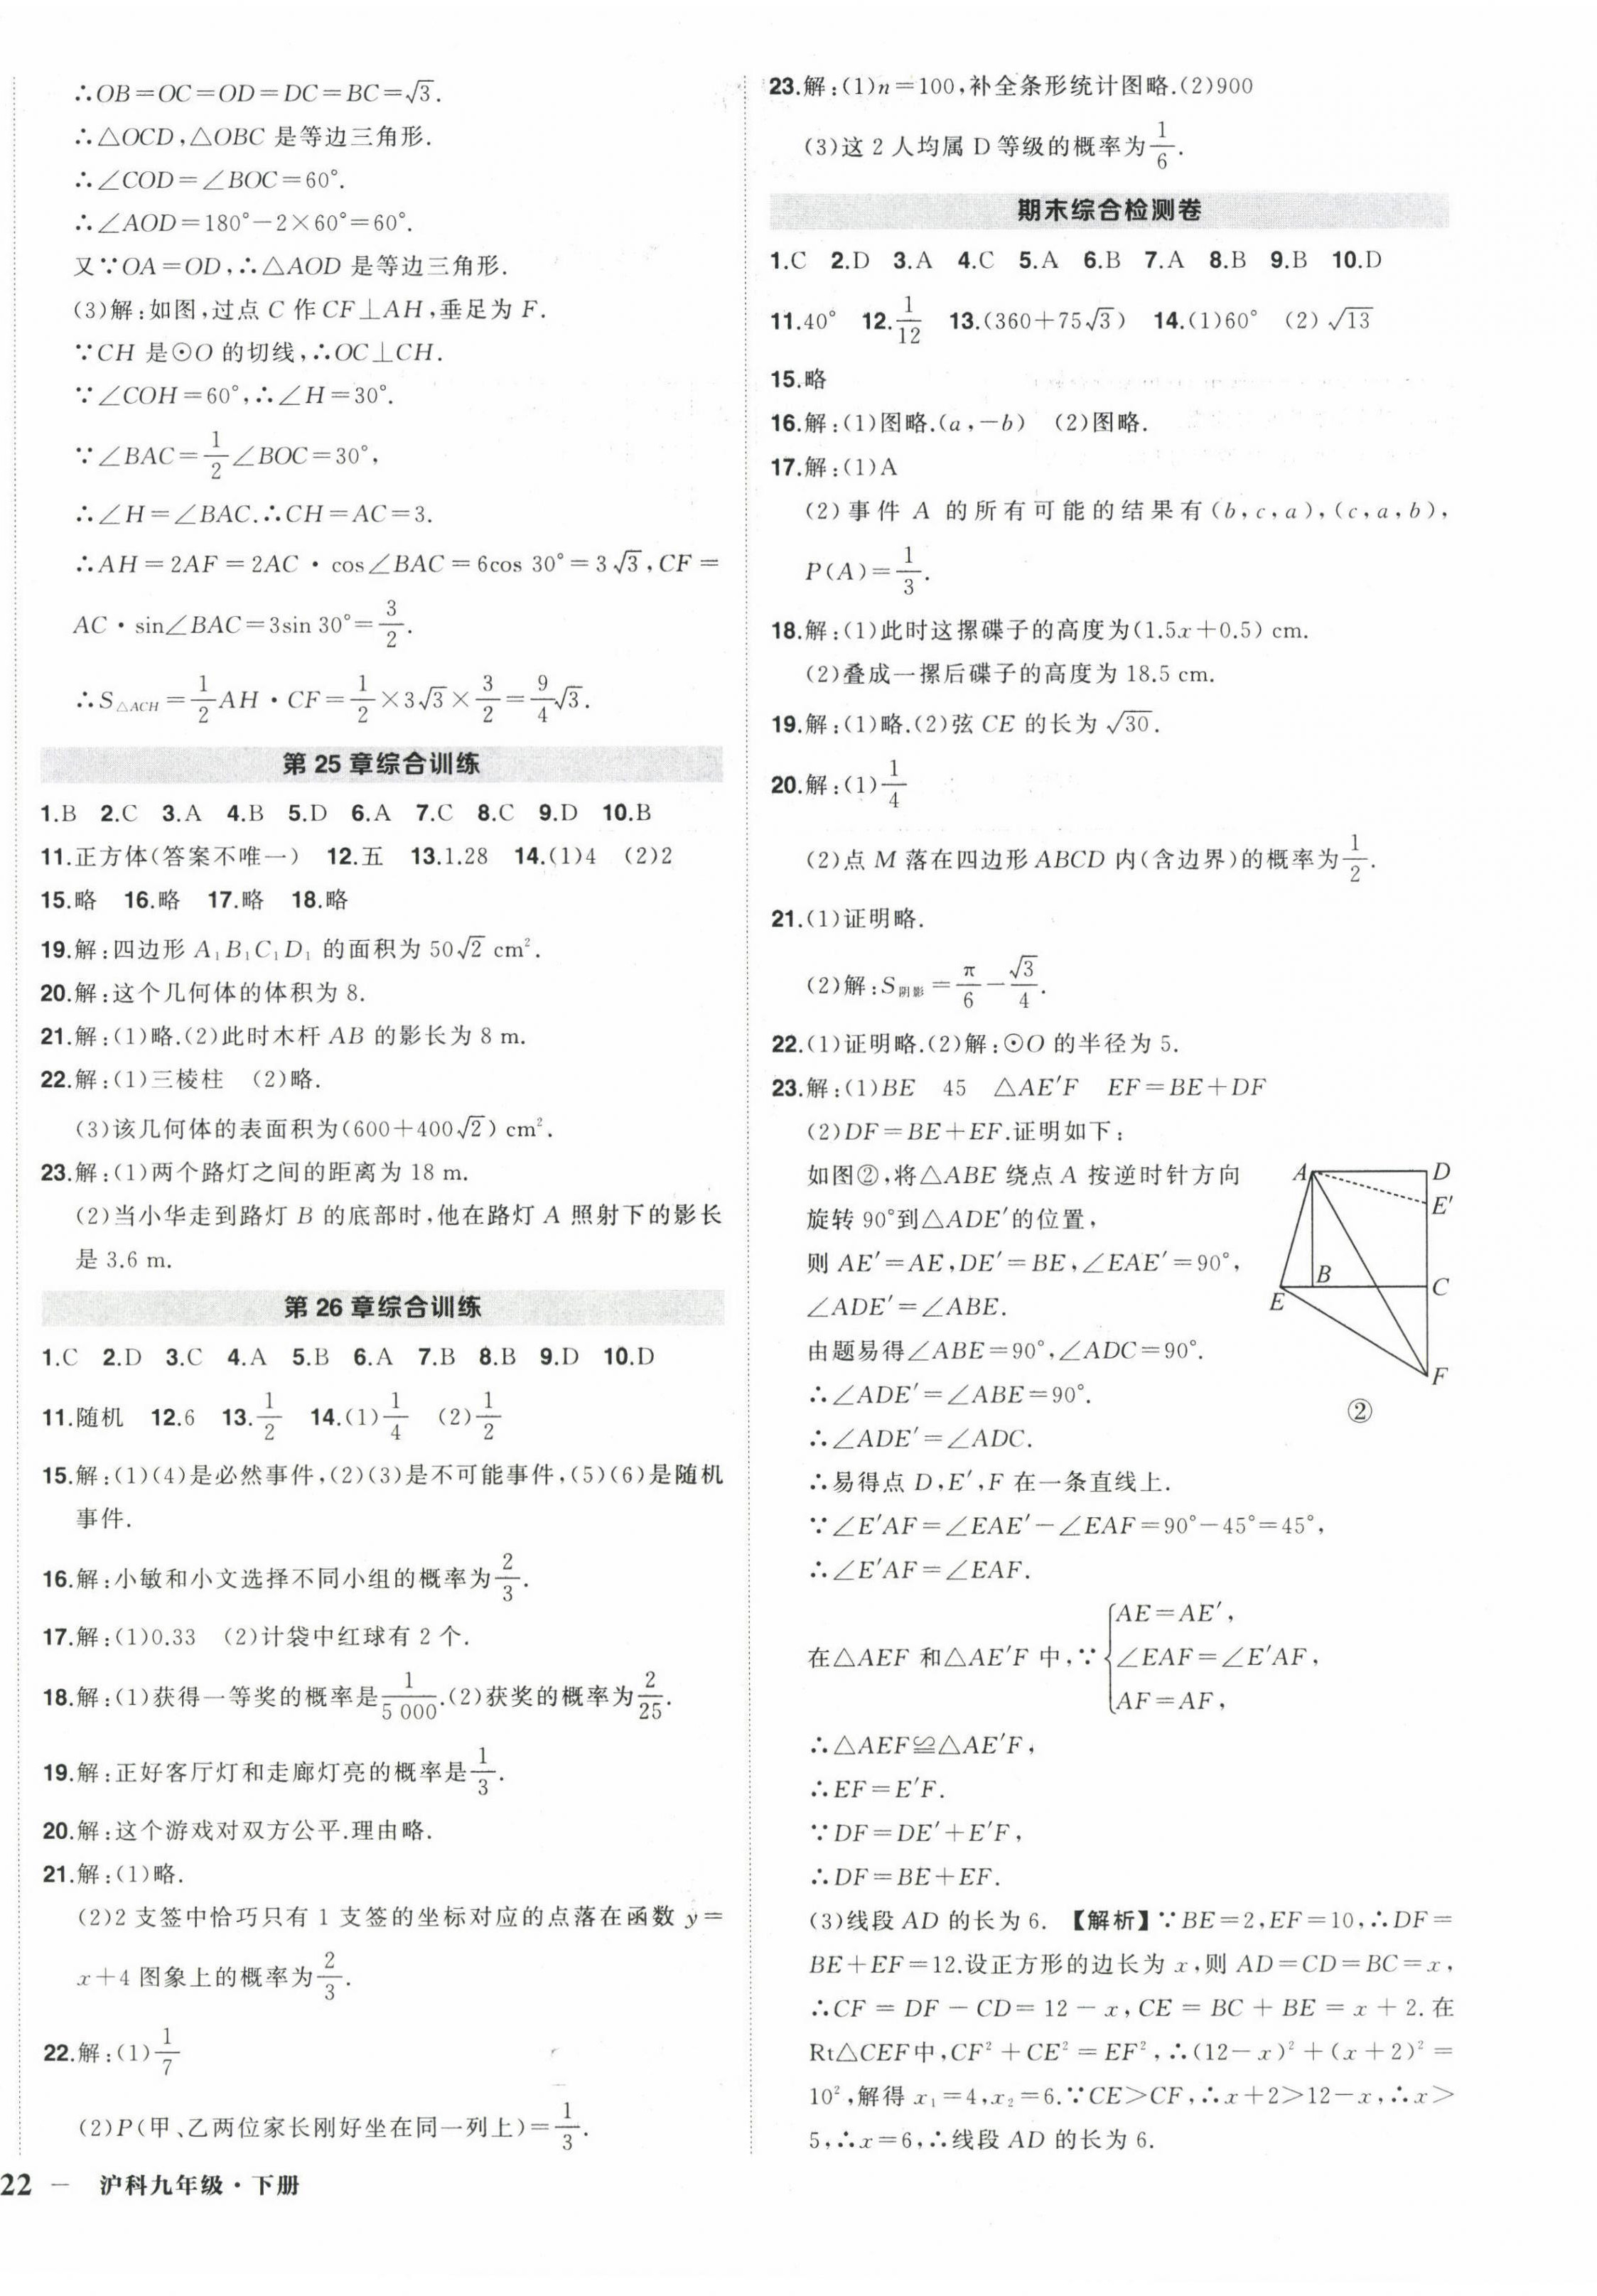 ∴OB=OC=OD=DC=BC=√3.
∴△OCD,△OBC 是等边三角形.
∴∠COD=∠BOC=60°.
∴∠AOD=180°-2×60°=60°.
又∵OA=OD,∴△AOD 是等边三角形.
(3)解:如图,过点 C 作 CF⊥AH,垂足为 F.
∵CH 是⊙O 的切线,∴OC⊥CH.
∵∠COH=60°,∴∠H=30°.
∵∠BAC=1/2∠BOC=30°,
∴∠H=∠BAC.∴CH=AC=3.
∴AH=2AF=2AC·cos∠BAC=6cos 30°=3√3,CF=
AC·sin∠BAC=3sin 30°=3/2.
∴S△ACH=1/2AH·CF=1/2×3√3×3/2=9/4√3.
第 25 章综合训练
1.B 2.C 3.A 4.B 5.D 6.A 7.C 8.C 9.D 10.B
11.正方体(答案不唯一) 12.五 13.1.28 14.(1)4 (2)2
15.略 16.略 17.略 18.略
19.解:四边形 A₁B₁C₁D₁ 的面积为 50√2 cm².
20.解:这个几何体的体积为 8.
21.解:(1)略.(2)此时木杆 AB 的影长为 8 m.
22.解:(1)三棱柱 (2)略.
(3)该几何体的表面积为(600+400√2) cm².
23.解:(1)两个路灯之间的距离为 18 m.
(2)当小华走到路灯 B 的底部时,他在路灯 A 照射下的影长
是 3.6 m.
第 26 章综合训练
1.C 2.D 3.C 4.A 5.B 6.A 7.B 8.B 9.D 10.D
11.随机 12.6 13.1/2 14.(1)1/4 (2)1/2
15.解:(1)(4)是必然事件,(2)(3)是不可能事件,(5)(6)是随机
事件.
16.解:小敏和小文选择不同小组的概率为2/3.
17.解:(1)0.33 (2)计袋中红球有 2 个.
18.解:(1)获得一等奖的概率是1/5 000.(2)获奖的概率为2/25.
19.解:正好客厅灯和走廊灯亮的概率是1/3.
20.解:这个游戏对双方公平.理由略.
21.解:(1)略.
(2)2 支签中恰巧只有 1 支签的坐标对应的点落在函数 y=
x+4 图象上的概率为2/3.
22.解:(1)1/7
(2)P(甲、乙两位家长刚好坐在同一列上)=1/3.
22 — 沪科九年级·下册
23.解:(1)n=100,补全条形统计图略.(2)900
(3)这 2 人均属 D 等级的概率为1/6.
期末综合检测卷
1.C 2.D 3.A 4.C 5.A 6.B 7.A 8.B 9.B 10.D
11.40° 12.1/12 13.(360+75√3) 14.(1)60° (2)√13
15.略
16.解:(1)图略.(a,-b) (2)图略.
17.解:(1)A
(2)事件 A 的所有可能的结果有(b,c,a),(c,a,b),
P(A)=1/3.
18.解:(1)此时这摞碟子的高度为(1.5x+0.5) cm.
(2)叠成一摞后碟子的高度为 18.5 cm.
19.解:(1)略.(2)弦 CE 的长为√30.
20.解:(1)1/4
(2)点 M 落在四边形 ABCD 内(含边界)的概率为1/2.
21.(1)证明略.
(2)解:S阴影=π/6-√3/4.
22.(1)证明略.(2)解:⊙O 的半径为 5.
23.解:(1)BE 45 △AE′F EF=BE+DF
(2)DF=BE+EF.证明如下:
如图②,将△ABE 绕点 A 按逆时针方向
旋转 90°到△ADE′的位置,
则 AE′=AE,DE′=BE,∠EAE′=90°,
∠ADE′=∠ABE.
由题易得∠ABE=90°,∠ADC=90°.
∴∠ADE′=∠ABE=90°.
∴∠ADE′=∠ADC.
∴易得点 D,E′,F 在一条直线上.
∵∠E′AF=∠EAE′-∠EAF=90°-45°=45°,
∴∠E′AF=∠EAF.
在△AEF 和△AE′F 中,∵{AE=AE′,
∠EAF=∠E′AF,
AF=AF,
∴△AEF≌△AE′F,
∴EF=E′F.
∵DF=DE′+E′F,
∴DF=BE+EF.
(3)线段 AD 的长为 6.【解析】∵BE=2,EF=10,∴DF=
BE+EF=12.设正方形的边长为 x,则 AD=CD=BC=x,
∴CF=DF-CD=12-x,CE=BC+BE=x+2.在
Rt△CEF中,CF²+CE²=EF²,∴(12-x)²+(x+2)²=
10²,解得 x₁=4,x₂=6.∵CE>CF,∴x+2>12-x,∴x>
5,∴x=6,∴线段 AD 的长为 6.
A
D
E′
B
C
E
F
②